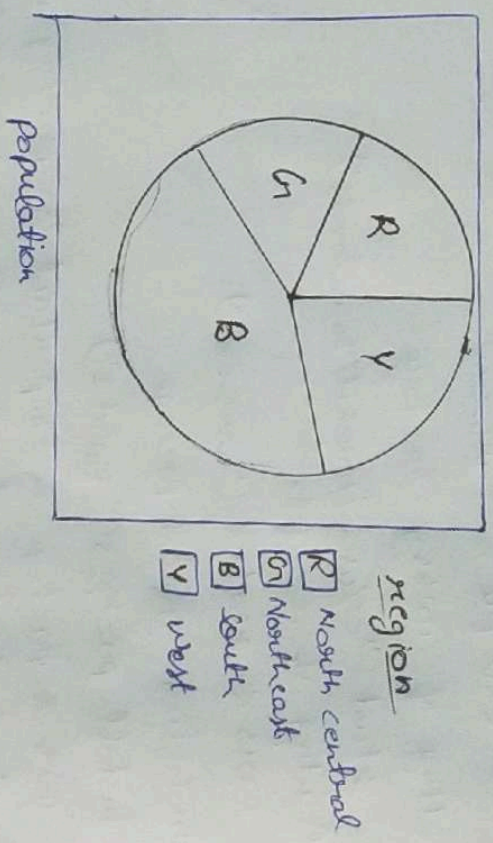 R
Y
G
B
Population
region
R North central
G Northeast
B South
Y West